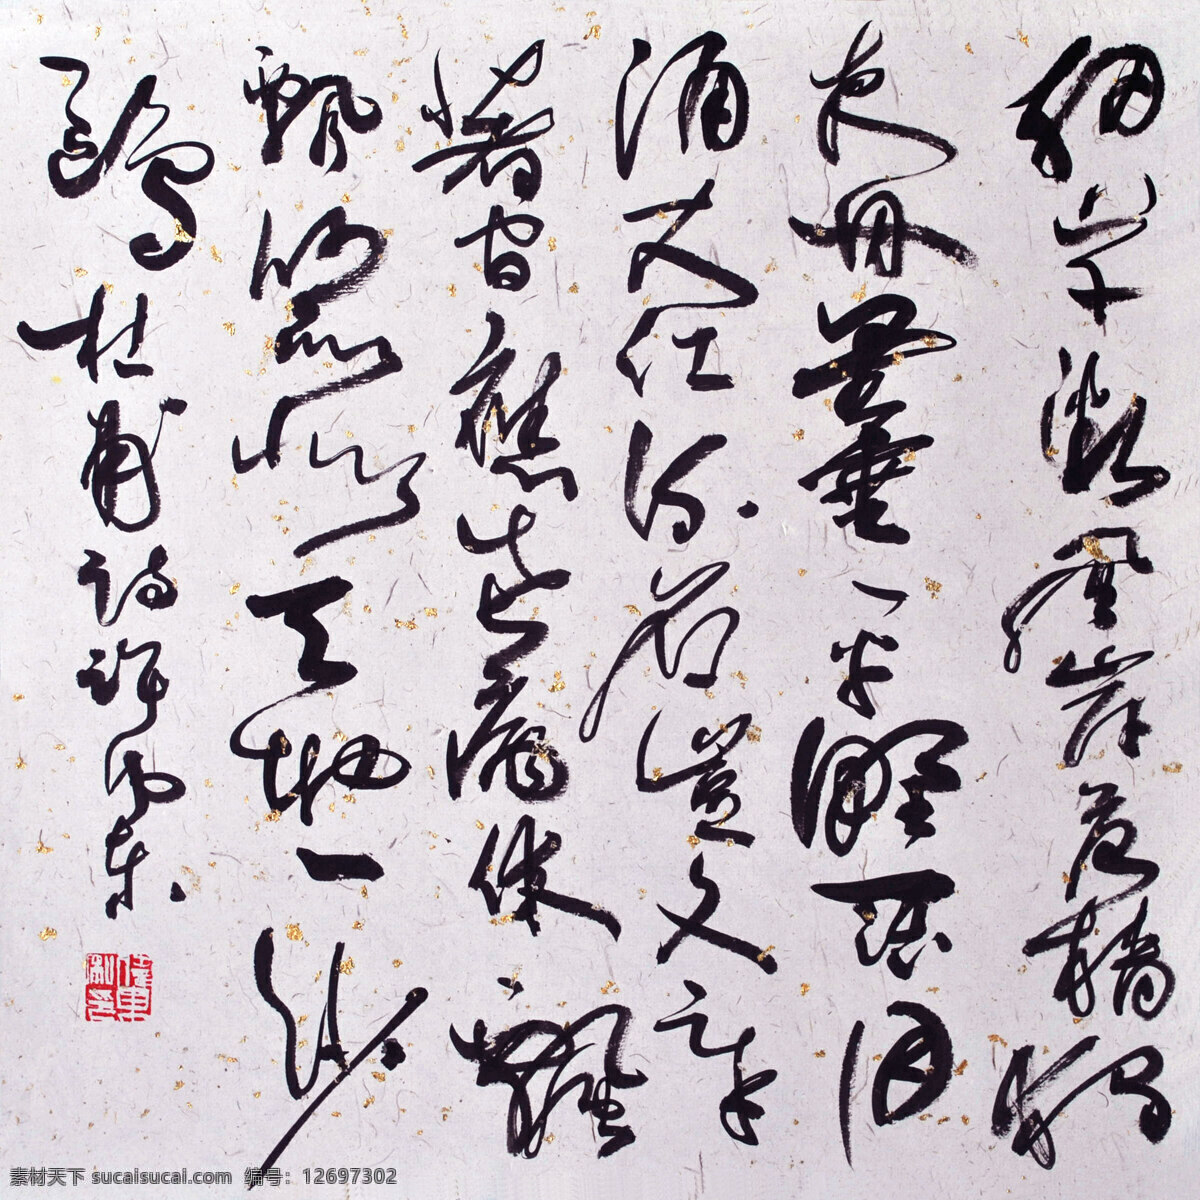 細草微風岸危檣獨
夜舟星垂平野闊月
涌大江流名豈文章
著官應老病休飄
飄何所似天地一沙
鷗杜甫詩許偉東
素材天下 sucaisucai.com 编号：12697302